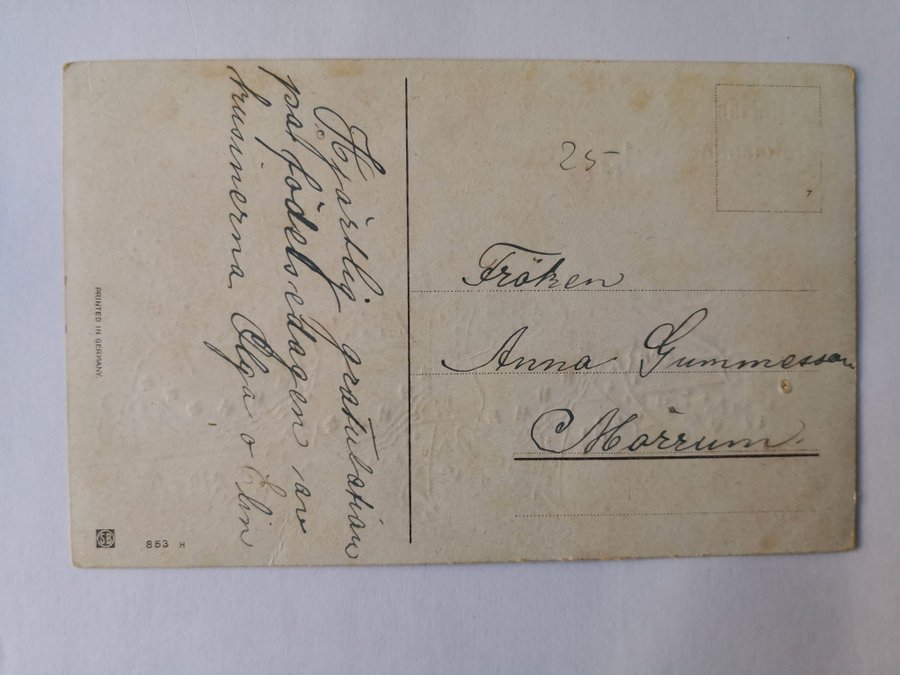 Hjärtlig gratulation
på födelsedagen av
kusinerna Olga o Elin
25
Fröken
Anna Gummesson
Mörrum.
PRINTED IN GERMANY
SB
853 H
7